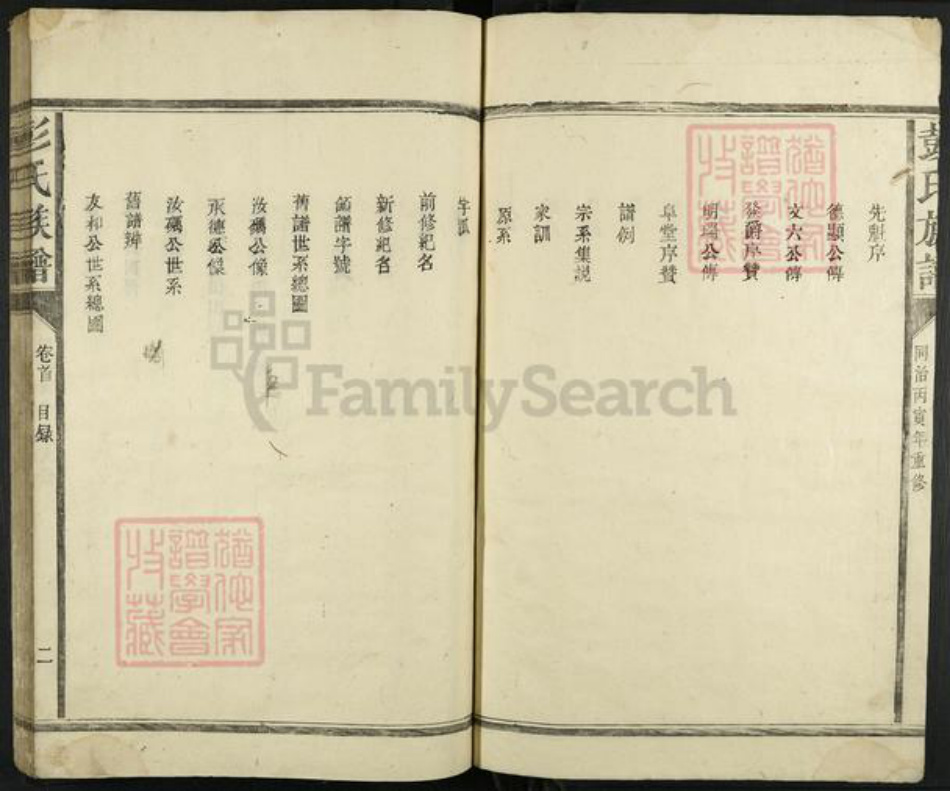 彭氏族譜
同治丙寅年重修
先勳序
德顯公傳
文六公傳
發爵序贊
明瑞公傳
阜堂序贊
譜例
宗系集説
家訓
原系
字派
前修紀名
新修紀名
領譜字號
舊譜世系總圖
汝礪公像
承德公像
汝礪公世系
舊譜辨
友和公世系總圖
彭氏族譜
卷首 目録
二
猶他家譜學會收藏
猶他家譜學會收藏
FamilySearch